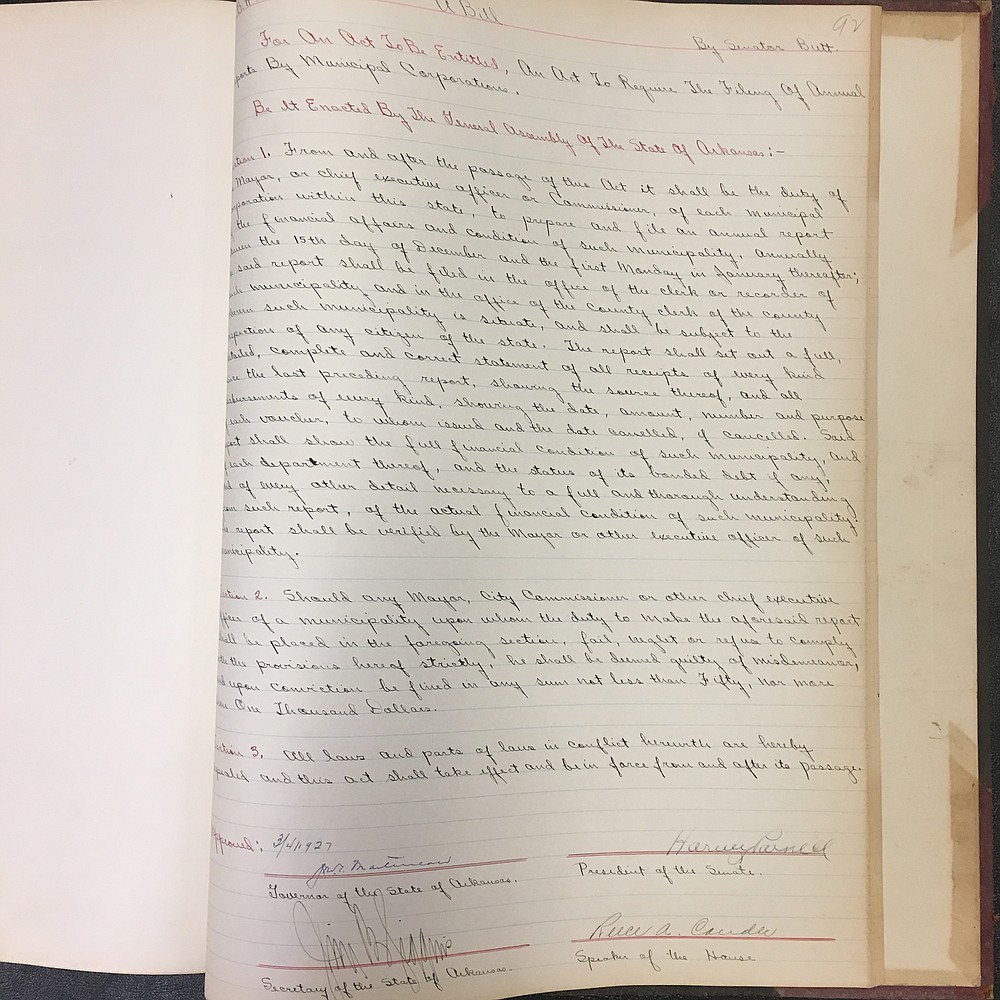 A Bill
92
By Senator Butt.
For An Act To Be Entitled, An Act To Require The Filing Of Annual
ports By Municipal Corporations.
Be It Enacted By The General Assembly Of The State Of Arkansas:-
ction 1. From and after the passage of this Act it shall be the duty of
Mayor, or chief executive officer or Commissioner, of each municipal
poration within this state, to prepare and file an annual report
the financial affairs and condition of such municipality, annually
ween the 15th day of December and the first Monday in January thereafter;
said report shall be filed in the office of the clerk or recorder of
ch municipality and in the office of the County Clerk of the county
herein such municipality is situate, and shall be subject to the
spection of any citizen of the state. The report shall set out a full,
tailed, complete and correct statement of all receipts of every kind
ce the last preceding report, showing the source thereof, and all
sbursements of every kind, showing the date, amount, number and purpose
each voucher, to whom issued and the date cancelled, if cancelled. Said
port shall show the full financial condition of such municipality, and
each department thereof, and the status of its bonded debt if any,
d of every other detail necessary to a full and thorough understanding
om such report, of the actual financial condition of such municipality.
e report shall be verified by the Mayor or other executive officer of such
unicipality.
ction 2. Should any Mayor, City Commissioner or other chief executive
fficer of a municipality upon whom the duty to make the aforesaid report
hall be placed in the foregoing section, fail, neglet or refuse to comply
ith the provisions hereof strictly, he shall be deemed guilty of misdemeanor,
d upon conviction be fined in any sum not less than Fifty, nor more
an One Thousand Dollars.
ction 3. All laws and parts of laws in conflict herewith are hereby
pealed and this act shall take effect and be in force from and after its passage.
Approved: 3/4/1927
Jno. E. Martineau
Harvey Parnell
Governor of the State of Arkansas.
President of the Senate.
Jim B Higgins
Reece A. Caudle
Secretary of the State of Arkansas.
Speaker of the House